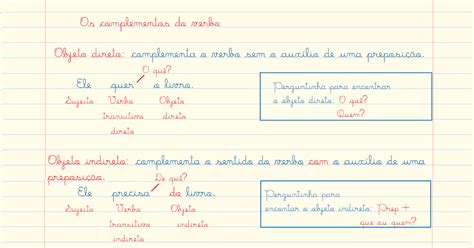 Os complementos do verbo
Objeto direto: complementa o verbo sem o auxílio de uma preposição.
O quê?
Ele quer o livro.
Sujeito Verbo Objeto
transitivo direto
direto
Perguntinha para encontrar
o objeto direto: O quê?
Quem?
Objeto indireto: complementa o sentido do verbo com o auxílio de uma
preposição.
De quê?
Ele precisa do livro.
Sujeito Verbo Objeto
transitivo indireto
indireto
Perguntinha para
encontar o objeto indireto: Prep +
que ou quem?